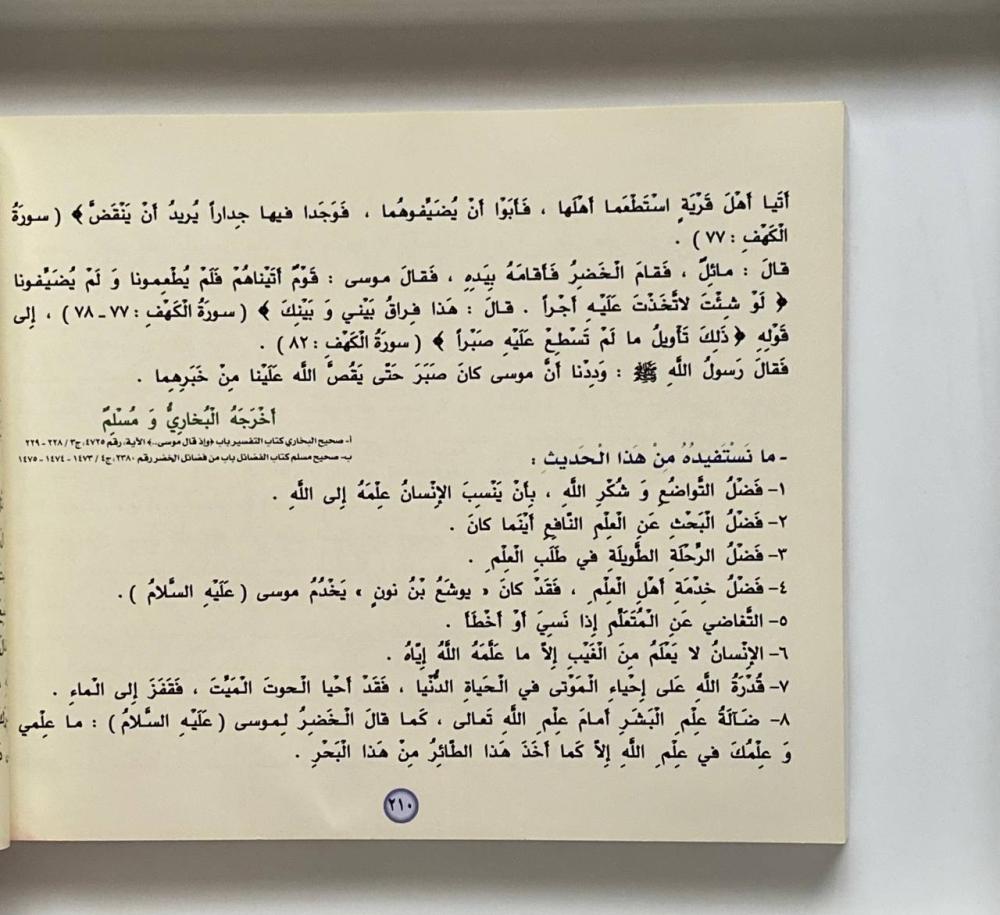 أَتَيا أَهْلَ قَرْيَةٍ اسْتَطْعَما أَهْلَها ، فَأَبَوْا أَنْ يُضَيِّفوهُما ، فَوَجَدا فيها جِداراً يُريدُ أَنْ يَنْقَضَّ﴾ ( سورَةُ
الْكَهْفِ : ٧٧ ) .
قالَ : مائِلٌ ، فَقامَ الْخَضِرُ فَأَقامَهُ بِيَدِهِ ، فَقالَ موسى : قَوْمٌ أَتَيْناهُمْ فَلَمْ يُطْعِمونا وَ لَمْ يُضَيِّفونا
﴿ لَوْ شِئْتَ لاتَّخَذْتَ عَلَيْهِ أَجْراً . قالَ : هَذا فِراقُ بَيْني وَ بَيْنِكَ ﴾ ( سورَةُ الْكَهْفِ : ٧٧ - ٧٨ ) ، إِلى
قَوْلِهِ ﴿ ذَلِكَ تَأْويلُ ما لَمْ تَسْطِعْ عَلَيْهِ صَبْراً ﴾ ( سورَةُ الْكَهْفِ : ٨٢ ) .
فَقالَ رَسولُ اللَّهِ ﷺ : وَدِدْنا أَنَّ موسى كانَ صَبَرَ حَتّى يَقُصَّ اللَّه عَلَيْنا مِنْ خَبَرِهِما .
أَخْرَجَهُ الْبُخارِيُّ وَ مُسْلِمٌ
أ- صحيح البخاري كتاب التفسير باب ﴿وإذ قال موسى..﴾ الآية، رقم ٤٧٢٥، ج٣ / ٢٢٨ - ٢٢٩
ب- صحيح مسلم كتاب الفضائل باب من فضائل الخضر رقم ٢٣٨٠، ج٤ / ١٤٧٣ - ١٤٧٤ - ١٤٧٥
- ما نَسْتَفيدُهُ مِنْ هَذا الْحَديثِ :
١- فَضْلُ التَّواضُعِ وَ شُكْرِ اللَّهِ ، بِأَنْ يَنْسِبَ الإِنْسانُ عِلْمَهُ إِلى اللَّهِ .
٢- فَضْلُ الْبَحْثِ عَنِ الْعِلْمِ النّافِعِ أَيْنَما كانَ .
٣- فَضْلُ الرِّحْلَةِ الطَّويلَةِ في طَلَبِ الْعِلْمِ .
٤- فَضْلُ خِدْمَةِ أَهْلِ الْعِلْمِ ، فَقَدْ كانَ « يوشَعُ بْنُ نونٍ » يَخْدُمُ موسى ( عَلَيْهِ السَّلامُ ) .
٥- التَّغاضي عَنِ الْمُتَعَلِّمِ إِذا نَسِيَ أَوْ أَخْطَأَ .
٦- الإِنْسانُ لا يَعْلَمُ مِنَ الْغَيْبِ إِلاّ ما عَلَّمَهُ اللَّهُ إِيّاهُ .
٧- قُدْرَةُ اللَّهِ عَلى إِحْياءِ الْمَوْتى في الْحَياةِ الدُّنْيا ، فَقَدْ أَحْيا الْحوتَ الْمَيِّتَ ، فَقَفَزَ إِلى الْماءِ .
٨- ضَآلَةُ عِلْمِ الْبَشَرِ أَمامَ عِلْمِ اللَّهِ تَعالى ، كَما قالَ الْخَضِرُ لِموسى ( عَلَيْهِ السَّلامُ ) : ما عِلْمي
وَ عِلْمُكَ في عِلْمِ اللَّهِ إِلاّ كَما أَخَذَ هَذا الطّائِرُ مِنْ هَذا الْبَحْرِ .
٢١٠